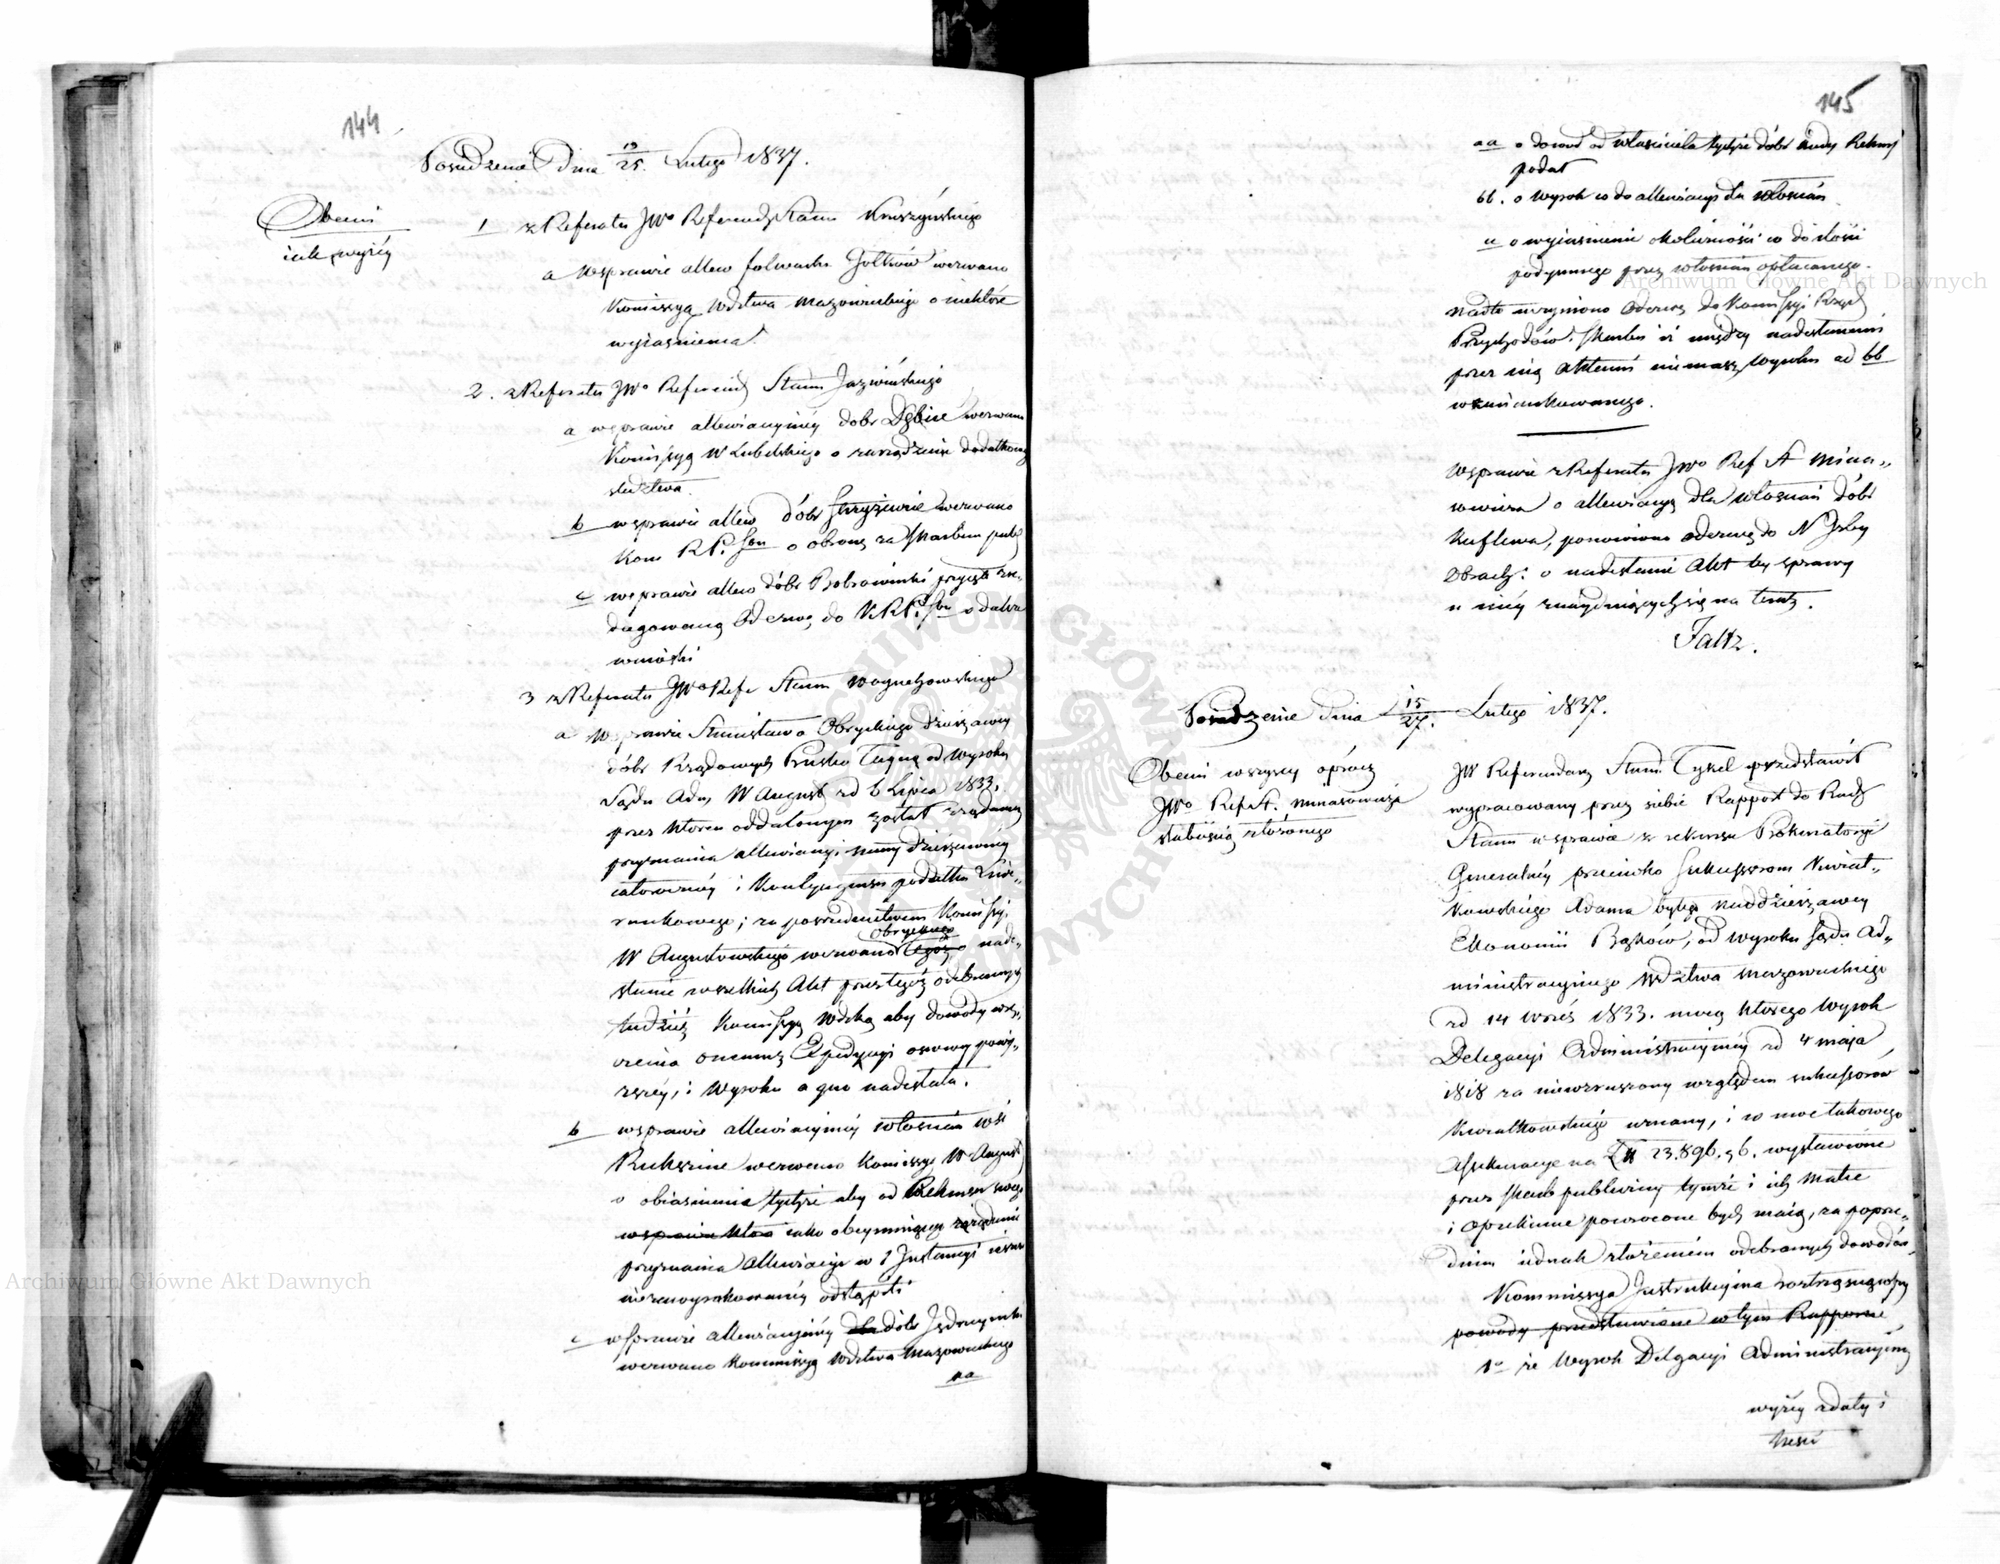 144
Posiedzenie Dnia 13/25. Lutego 1837.
Obecni
iak wyżéy
1 z Referatu JWo Referendza Stanu Kruszyńskiego
a Wsprawie allew folwarku Gołków wezwano
Kommissyą Wdztwa Mazowieckiego o niektóre
wyiasnienia.
2. z Referatu JWo Referend Stanu Jazwińskiego
a wsprawie allewiacyinéy dobr Dębice wezwano
Komissyą W Lubelskiego o zarządzenie dodatkowego
sledztwa.
b wsprawie allew dóbr Strzyżewice wezwano
Kom R P. i Sbu o obronę za Skarbem publ
c wsprawie allew dóbr Bobrowniki przyięto zre-
dagowaną Odezwę do KRP. i Sbu o dalsze
wnioski
3 z Referatu JWo Refe Stanu Woyciechowskiego
a Wsprawie Stanisława Obryckiego dzierżawcy
dóbr Rządowych od Wyroku
Sądu Adm W August zd 6 Lipca 1833,
przez ktoren oddalonym został żądaney
przyznania allewiacyi summy dzierżawnéy
i Kontyngensu podatku Liwe-
runkowego; za posrednictwem Komissyi
W Augustowskiego wezwano Tegoż Obryckiego o nade-
słanie wszelkich Akt przez tegoż odebranych
tudzież Komissyą Wdzką aby dowody wrę-
czenia onemuż Expedycyi osnowy powy-
ższéy, i Wyroku a quo nadesłała.
b wsprawie allewiacyinéy włoscian wsi
wezwano Komissyę W August
o obiasnienie tychże aby od Rekursu swego
wsprawie ktora iako obeymuiącego żądanie
przyznania Allewiacyi w I Instancyi ieszcze
niezawyrokowanéy odstąpili
c wsprawie allewiacyinéy dla dobr
wezwano Kommissyą Wdztwa Mazowieckiego
aa
145
aa o dowod od własciciela tychże dóbr kiedy Rekurs
podał
bb. o Wyrok co do allewiacyi dla włoscian
cc o wyiasnienie okoliczności co do ilości
podymnego przez włoscian opłacanego.
nadto uczyniono Odezwę do Komissyi Rząd
Przychodów i Skarbu iż między nadesłanemi
przez nią Aktami niemasz Wyroku ad bb
wzmiankowanego.
Wsprawie z Referatu JWo Ref St Mina-
sowicza o allewiacyą dla włoscian dóbr
Kuflewa, ponowiono odezwę do N Izby
Obrach: o nadesłanie Akt tey sprawy
u niéy znayduiących się na teraz.
Faltz.
Posiedzenie Dnia 15/27. Lutego 1837.
Obecni wszyscy oprócz
JWo Ref St. Minasowicza
słabością złożonego
JW Referendarz Stanu Tykel przedstawił
wypracowany przez siebie Rapport do Rady
Stanu w sprawie z rekursu Prokuratoryi
Generalnéy przeciwko Sukcessorom Kwiat-
kowskiego Adama byłego naddzierżawcy
Ekonomii Bąków, od wyroku Sądu Ad-
ministracyinego Wdztwa Mazowieckiego
zd 14 Wrześ 1833. mocą którego Wyrok
Delegacyi Administracyinéy zd 4 maja
1818 za niewzruszony względem sukcessorów
Kwiatkowskiego uznany, i w moc takowego
Assekuracye na ZŁ 23.896. g 6. wystawione
przez Skarb publiczny tymże i ich Matce
i Opiekunce powrocone bydź maią, za poprze-
dniem iednak złożeniem odebranych dowodów,
Kommissya Instrukcyina roztrząsnąwszy
powody przedstawione w tym Rapporcie
1o że Wyrok Delegacyi Administracyinéy
wyżéy z daty i
tresci